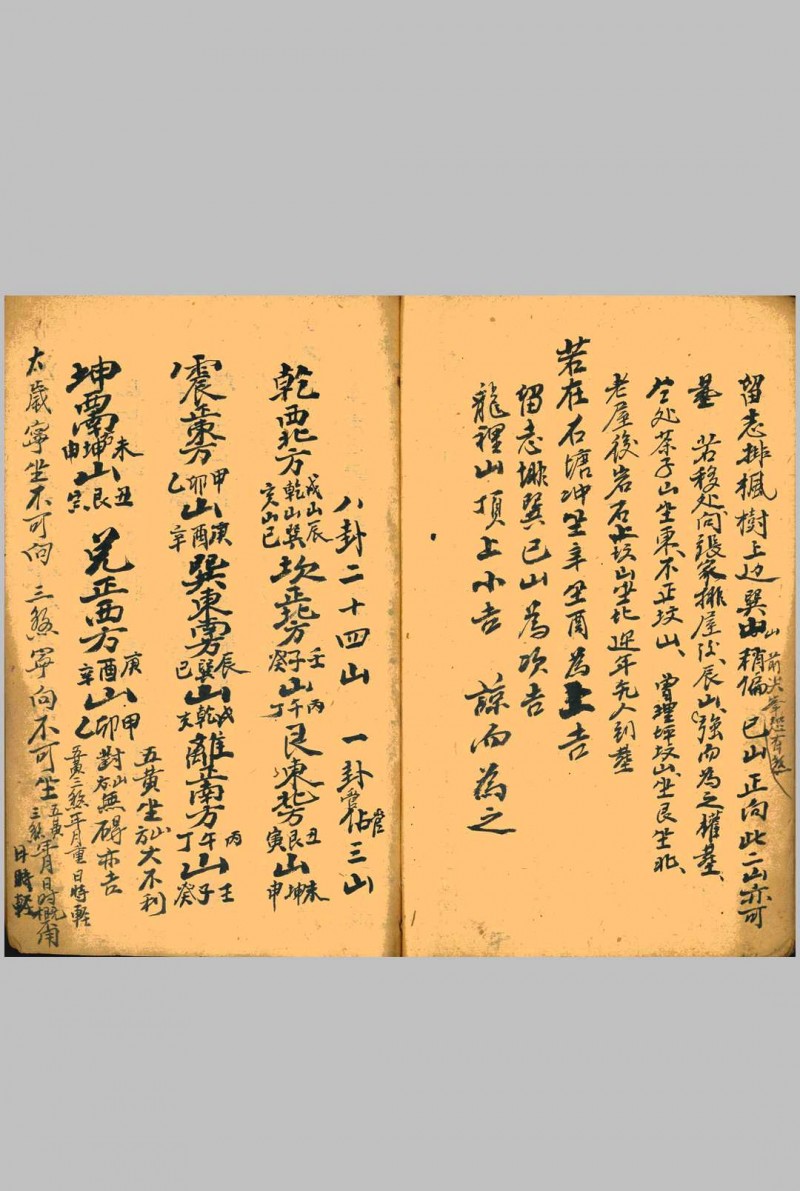 留志排楓樹上边巽山稍偏 巳山正向此二山亦可
墓 若移处向張家排屋后辰山強而為之權墓
茶子山坐東不正坟山 曾理坪坟山坐艮坐北
老屋後岩石上坟山坐北近年无人到墓
若在石塘冲坐辛坐酉為上吉
留志排巽巳山為次吉
龍裡山頂上小吉 諒而為之
八卦二十四山 一卦管三山
乾西北方 戌山辰 乾山巽 亥山巳 坎正北方 壬子癸山丙午丁 艮東北方 丑艮寅山未坤申
震正東方 甲卯乙山庚酉辛 巽東南方 辰巽巳山戌乾亥 離正南方 丙午丁山壬子癸
坤西南方 未坤申山丑艮寅 兌正西方 庚酉辛山甲卯乙
五黃坐山方大不利
對山方無碍亦吉
五黃三煞年月重日時輕
太歲寧坐不可向 三煞寧向不可坐
五黃三煞年月日时概用
日時輕